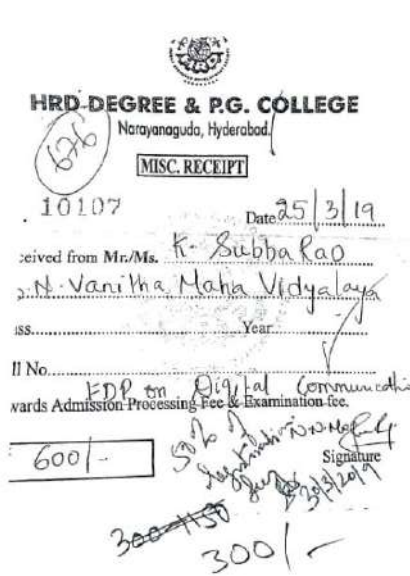 HRD-DEGREE & P.G. COLLEGE
Narayanaguda, Hyderabad.
676
MISC. RECEIPT
10107
Date 25/3/19
ceived from Mr./Ms. K. Subba Rao
N. Vanitha Maha Vidyalaya
ss. Year
ll No.
FDP on Digital Communicatio
wards Admission Processing Fee & Examination fee.
600/-
50% of
Registration
Signature
30/3/2019
300/-